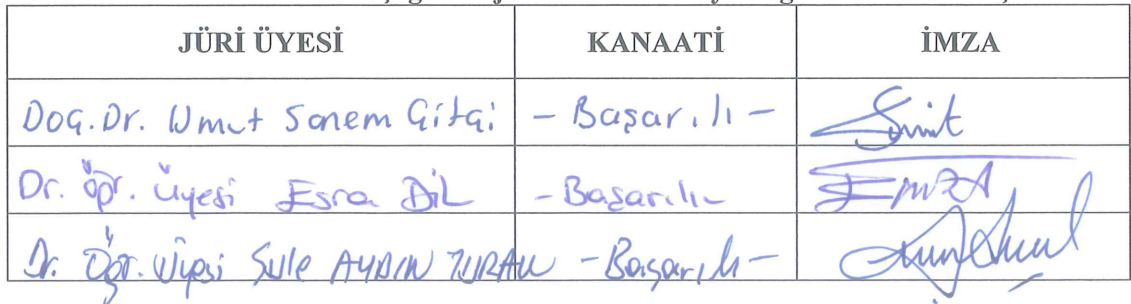 JÜRİ ÜYESİ KANAATİ İMZA
Doç. Dr. Umut Sanem Çitçi - Başarılı -
Dr. Öğr. Üyesi Esra DİL - Başarılı -
Dr. Öğr. Üyesi Şule AYDIN TURAN - Başarılı -